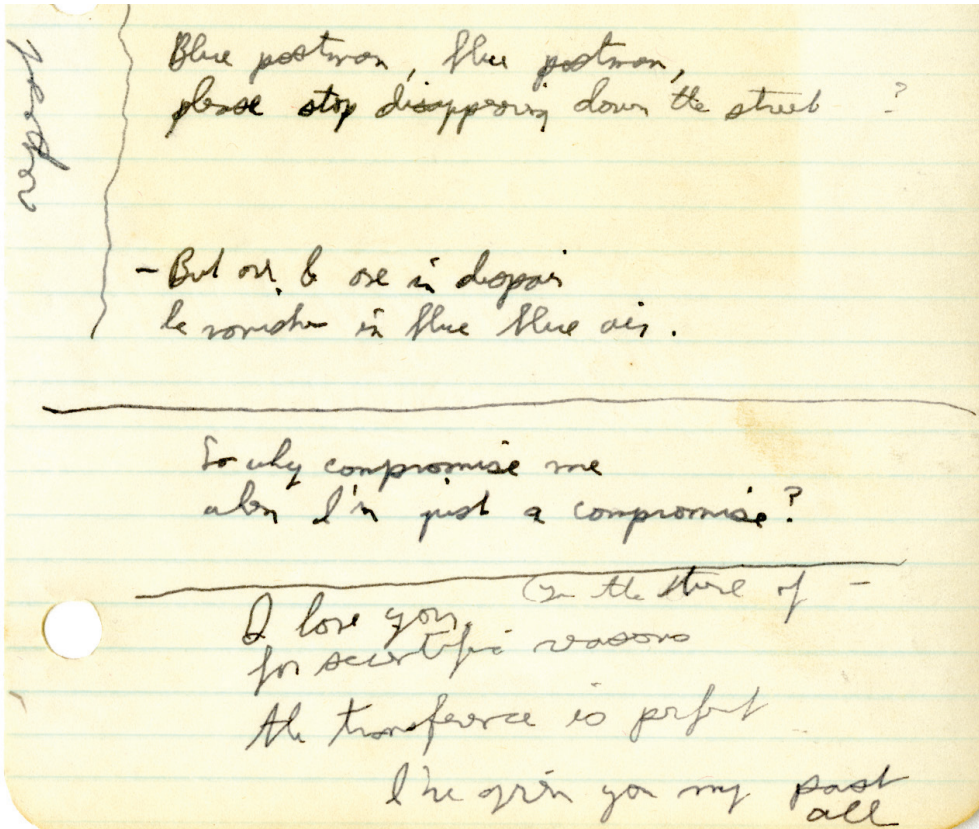 Blue postman, blue postman,
please stop disappearing down the street ?
- But one in despair
he vanishes in blue blue air.
So why compromise me
when I'm just a compromise?
(In the of -
I love you
for scientific reasons
the transference is perfect
I've given you my past
all